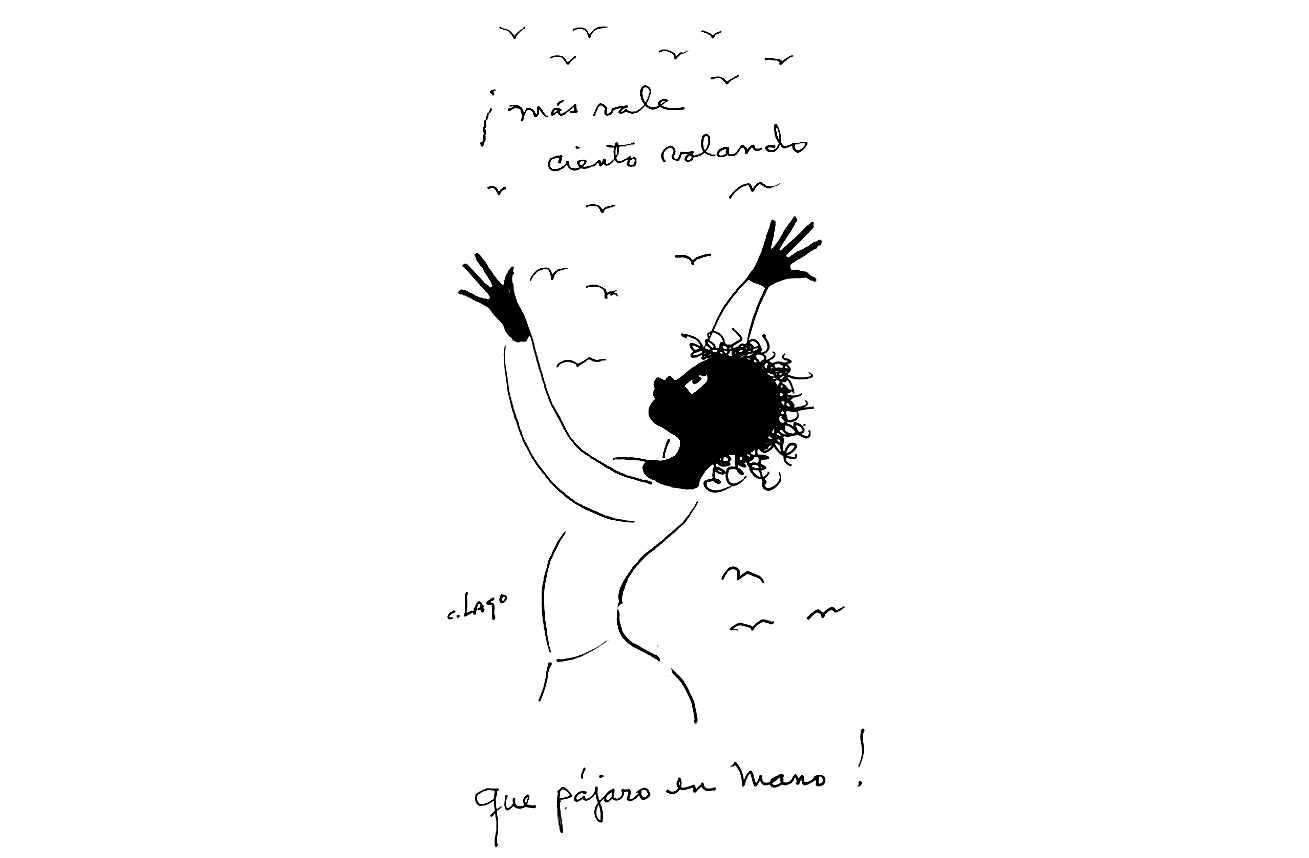 ¡más vale
ciento volando
c. Lago
que pájaro en mano!